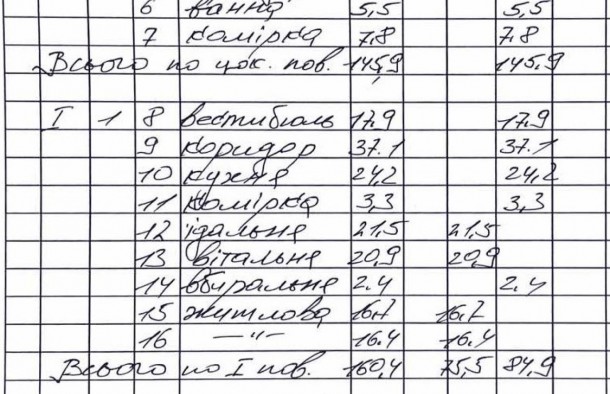 6 ванна 5,5 5,5
7 комірка 7.8 7.8
Всього по цок. пов. 145,9 145.9
I 1 8 вестибюль 17.9 17.9
9 коридор 37.1 37.1
10 кухня 24,2 24,2
11 комірка 3,3 3,3
12 їдальня 21,5 21,5
13 вітальня 20,9 20,9
14 вбиральня 2.4 2.4
15 житлова 16,7 16,7
16 —"— 16.4 16.4
Всього по I пов. 160,4 75,5 84,9